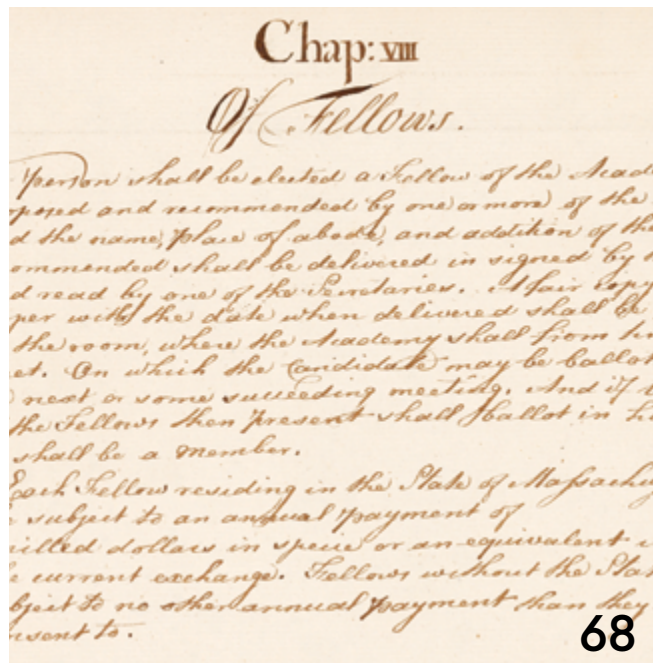 Chap: VIII
Of Fellows.
Person shall be elected a Fellow of the Acad
posed and recommended by one or more of the
d the name, place of abode, and addition of the
ommended shall be delivered in signed by
d read by one of the Secretaries. A fair copy
per with the date when delivered shall be
the room, where the Academy shall from
et. On which the Candidate may be ballot
next or some succeeding meeting. And if
the Fellows then present shall ballot in
shall be a Member.
Each Fellow residing in the State of Massachu
subject to an annual payment of
illed dollars in specie or an equivalent
current exchange. Fellows without the Stat
bject to no other annual payment than they
nsent to.
68